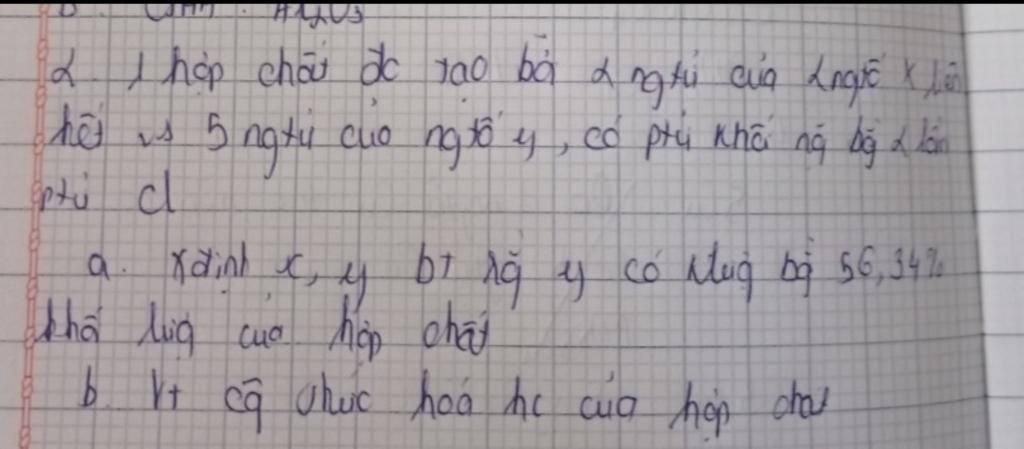 2. 1 hợp chất đc tạo bởi 2 ngtử của ngtố x liên
kết vs 5 ngtử của ngtố y, có ptử khối nặ bằ 2 lần
ptử cl
a. xđịnh x, y bt rằ y có klug bằ 56,34%
khối lượng của hợp chất
b. Vt cg thức hoá hc của hợp chất